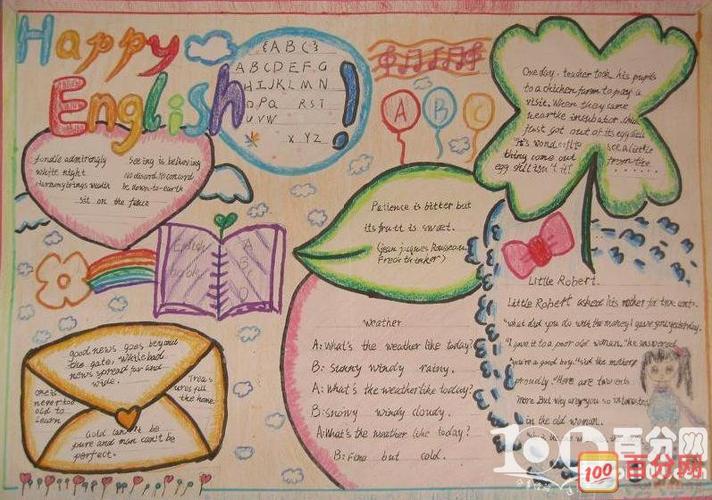 Happy
English!
{ABC}
ABCDEFG
HIJKLMN
OPQ RST
UVW
X YZ
A B C
One day. teacher took his pupils
to a chicken farm to pay a
visit. When they came
the incubator
just got out of its egg shell
see a little
thing come out
egg shell isn't it!
white night
sit on the fence
Seeing is believing
No discord, no concord
be down-to-earth
Patience is bitter but
its fruit is sweet.
(Jean Jacques Rousseau,
French thinker)
English
A
B
C
D
weather
A: What's the weather like today?
B: sunny windy rainy.
A: What's the weather like today?
B: snowy windy cloudy.
A: What's the weather like today?
B: Fine but cold.
Little Robert.
Little Robert asked his mother for two cents.
"what did you do with the money I gave you yesterday.
"I gave it to a poor old woman," he answered
"you're a good boy," said the mother
proudly. "Here are two cents
more. But why are you so interested
in the old woman.
good news goes beyond
the gate, while bad
news spread far and
wide.
one is
never too
old to
learn
Treas
ures fill
the home
Gold can't be
pure and man can't be
perfect.
100百分网
100 百分网